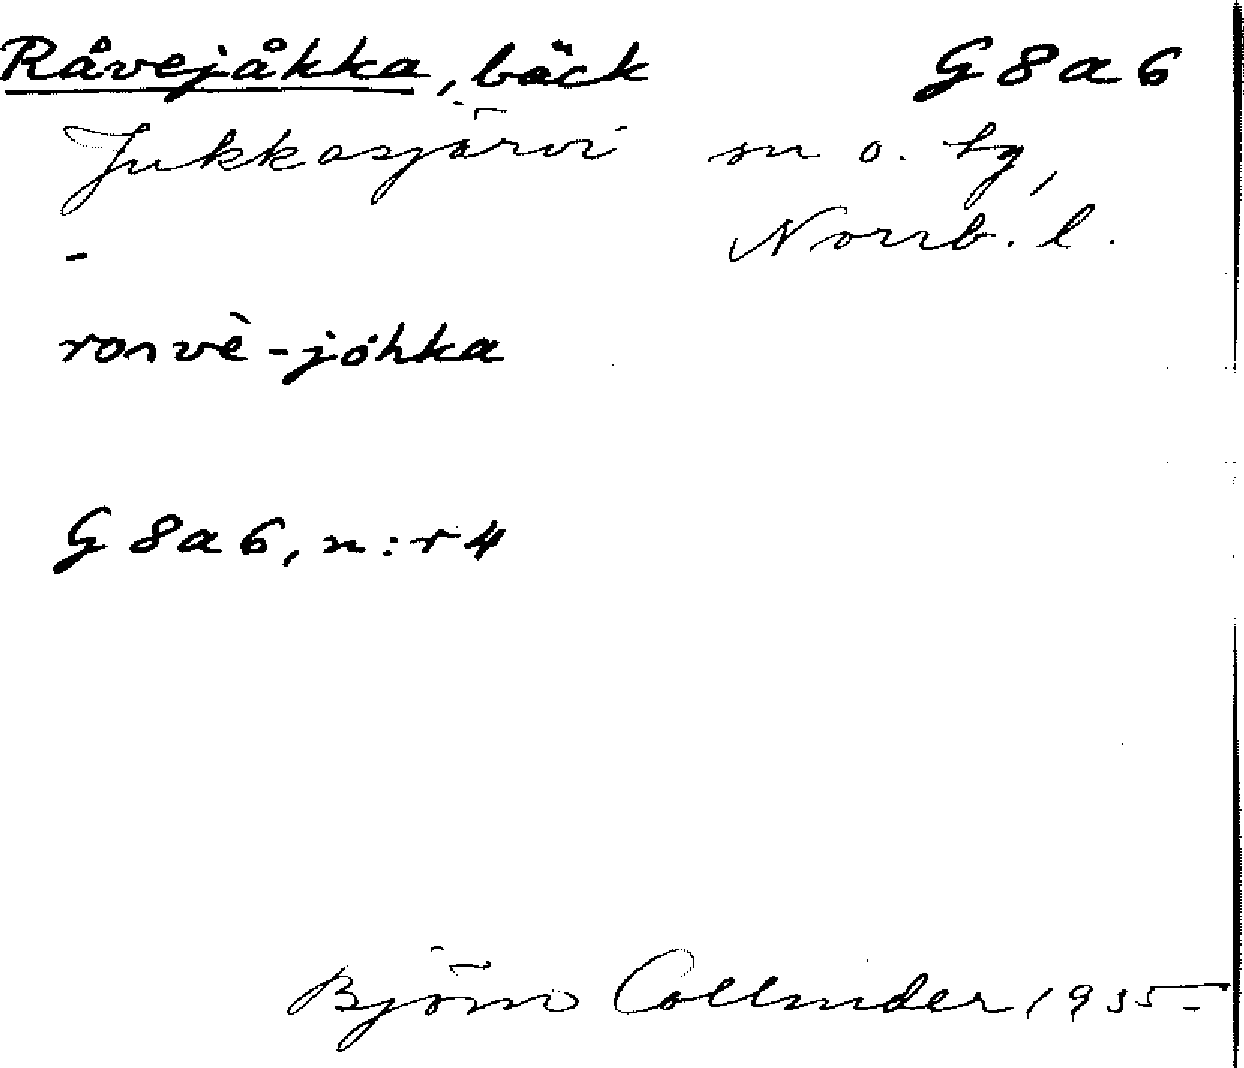 Råvejåkka, bäck G8a6
Jukkasjärvi sn o. tg,
- Norrb. l.
ronvè-jóhka
G8a6, n:r 4
Björn Collinder 1935